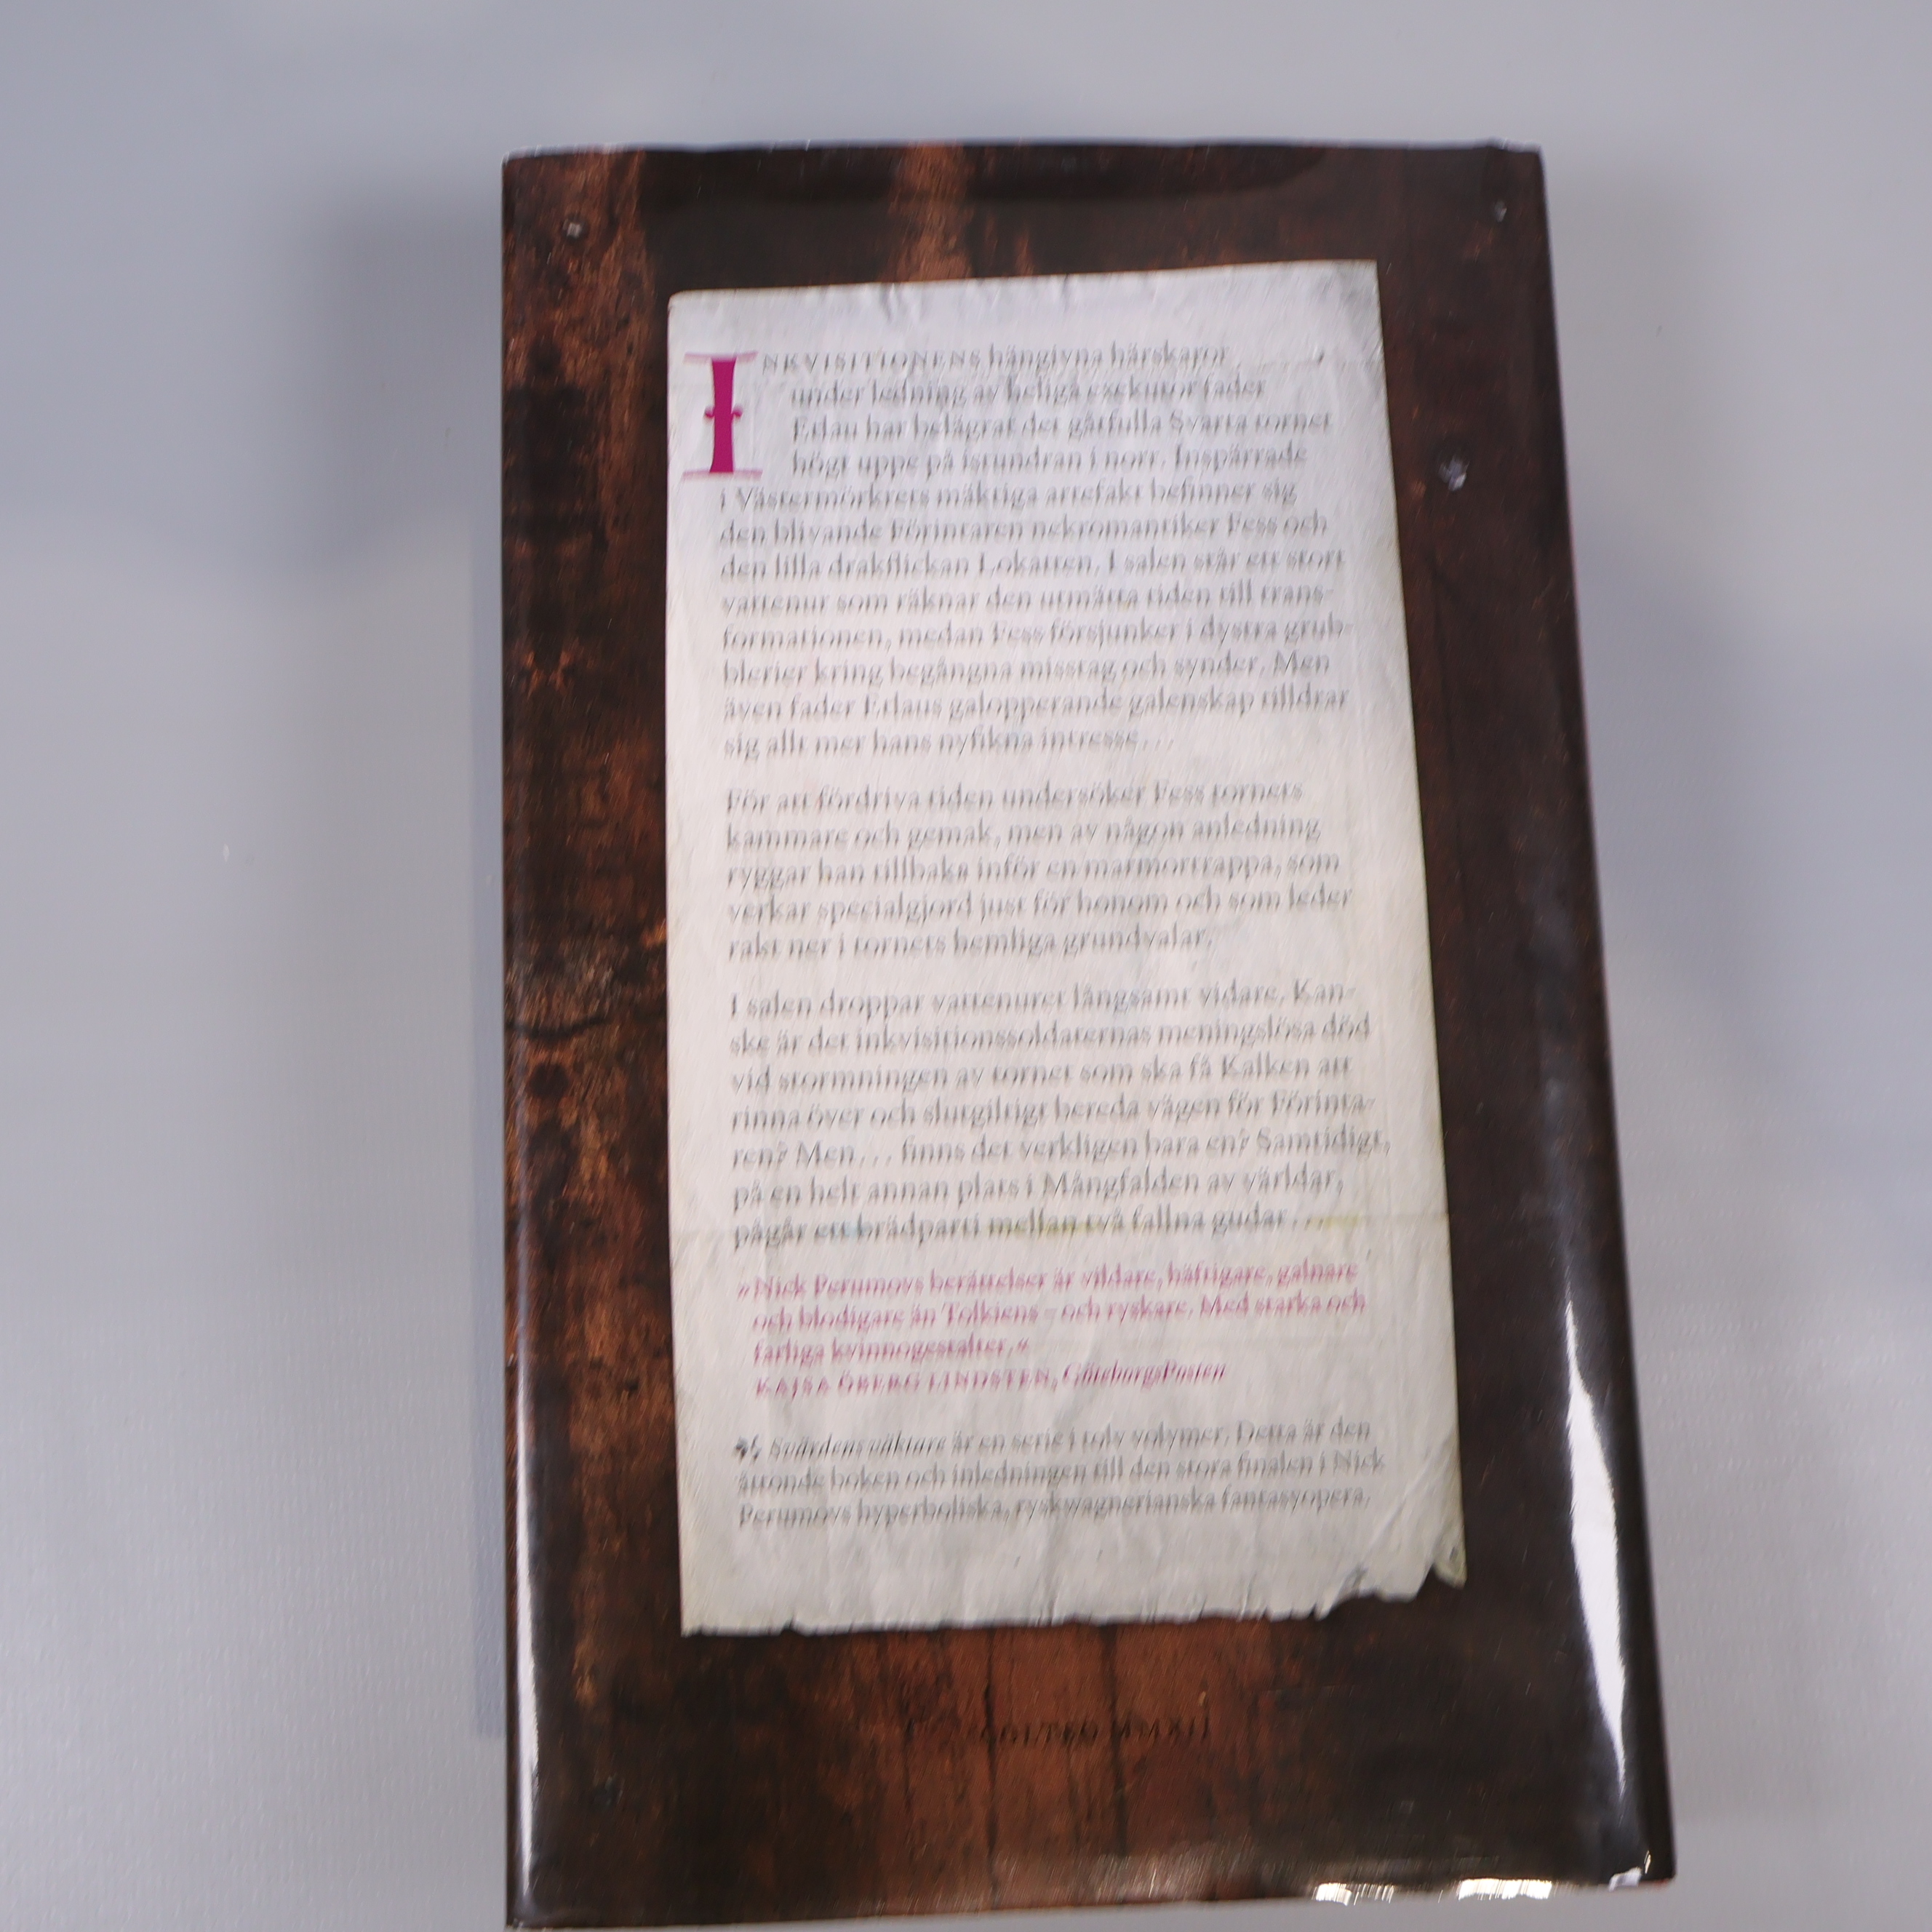 INKVISITIONENS hängivna härskaror
under ledning av heliga exekutor fader
Etlau har belägrat det gåtfulla Svarta tornet
högt uppe på istundran i norr. Inspärrade
i Västermörkrets mäktiga artefakt befinner sig
den blivande Förintaren nekromantiker Fess och
den lilla drakflickan Lokatten. I salen står ett stort
vattenur som räknar den utmätta tiden till trans-
formationen, medan Fess försjunker i dystra grub-
blerier kring begångna misstag och synder. Men
även fader Etlaus galopperande galenskap tilldrar
sig allt mer hans nyfikna intresse...
För att fördriva tiden undersöker Fess tornets
kammare och gemak, men av någon anledning
ryggar han tillbaka inför en marmortrappa, som
verkar specialgjord just för honom och som leder
rakt ner i tornets hemliga grundvalar.
I salen droppar vattenuret långsamt vidare. Kan-
ske är det inkvisitionssoldaternas meningslösa död
vid stormningen av tornet som ska få Kalken att
rinna över och slutgiltigt bereda vägen för Förinta-
ren? Men... finns det verkligen bara en? Samtidigt,
på en helt annan plats i Mångfalden av världar,
pågår ett brädparti mellan två fallna gudar...
»Nick Perumovs berättelser är vildare, häftigare, galnare
och blodigare än Tolkiens – och ryskare. Med starka och
farliga kvinnogestalter.«
KAJSA ÖBERG LINDSTEN, GöteborgsPosten
Svärdens väktare är en serie i tolv volymer. Detta är den
åttonde boken och inledningen till den stora finalen i Nick
Perumovs hyperboliska, ryskwagnerianska fantasyopera.
MMXII